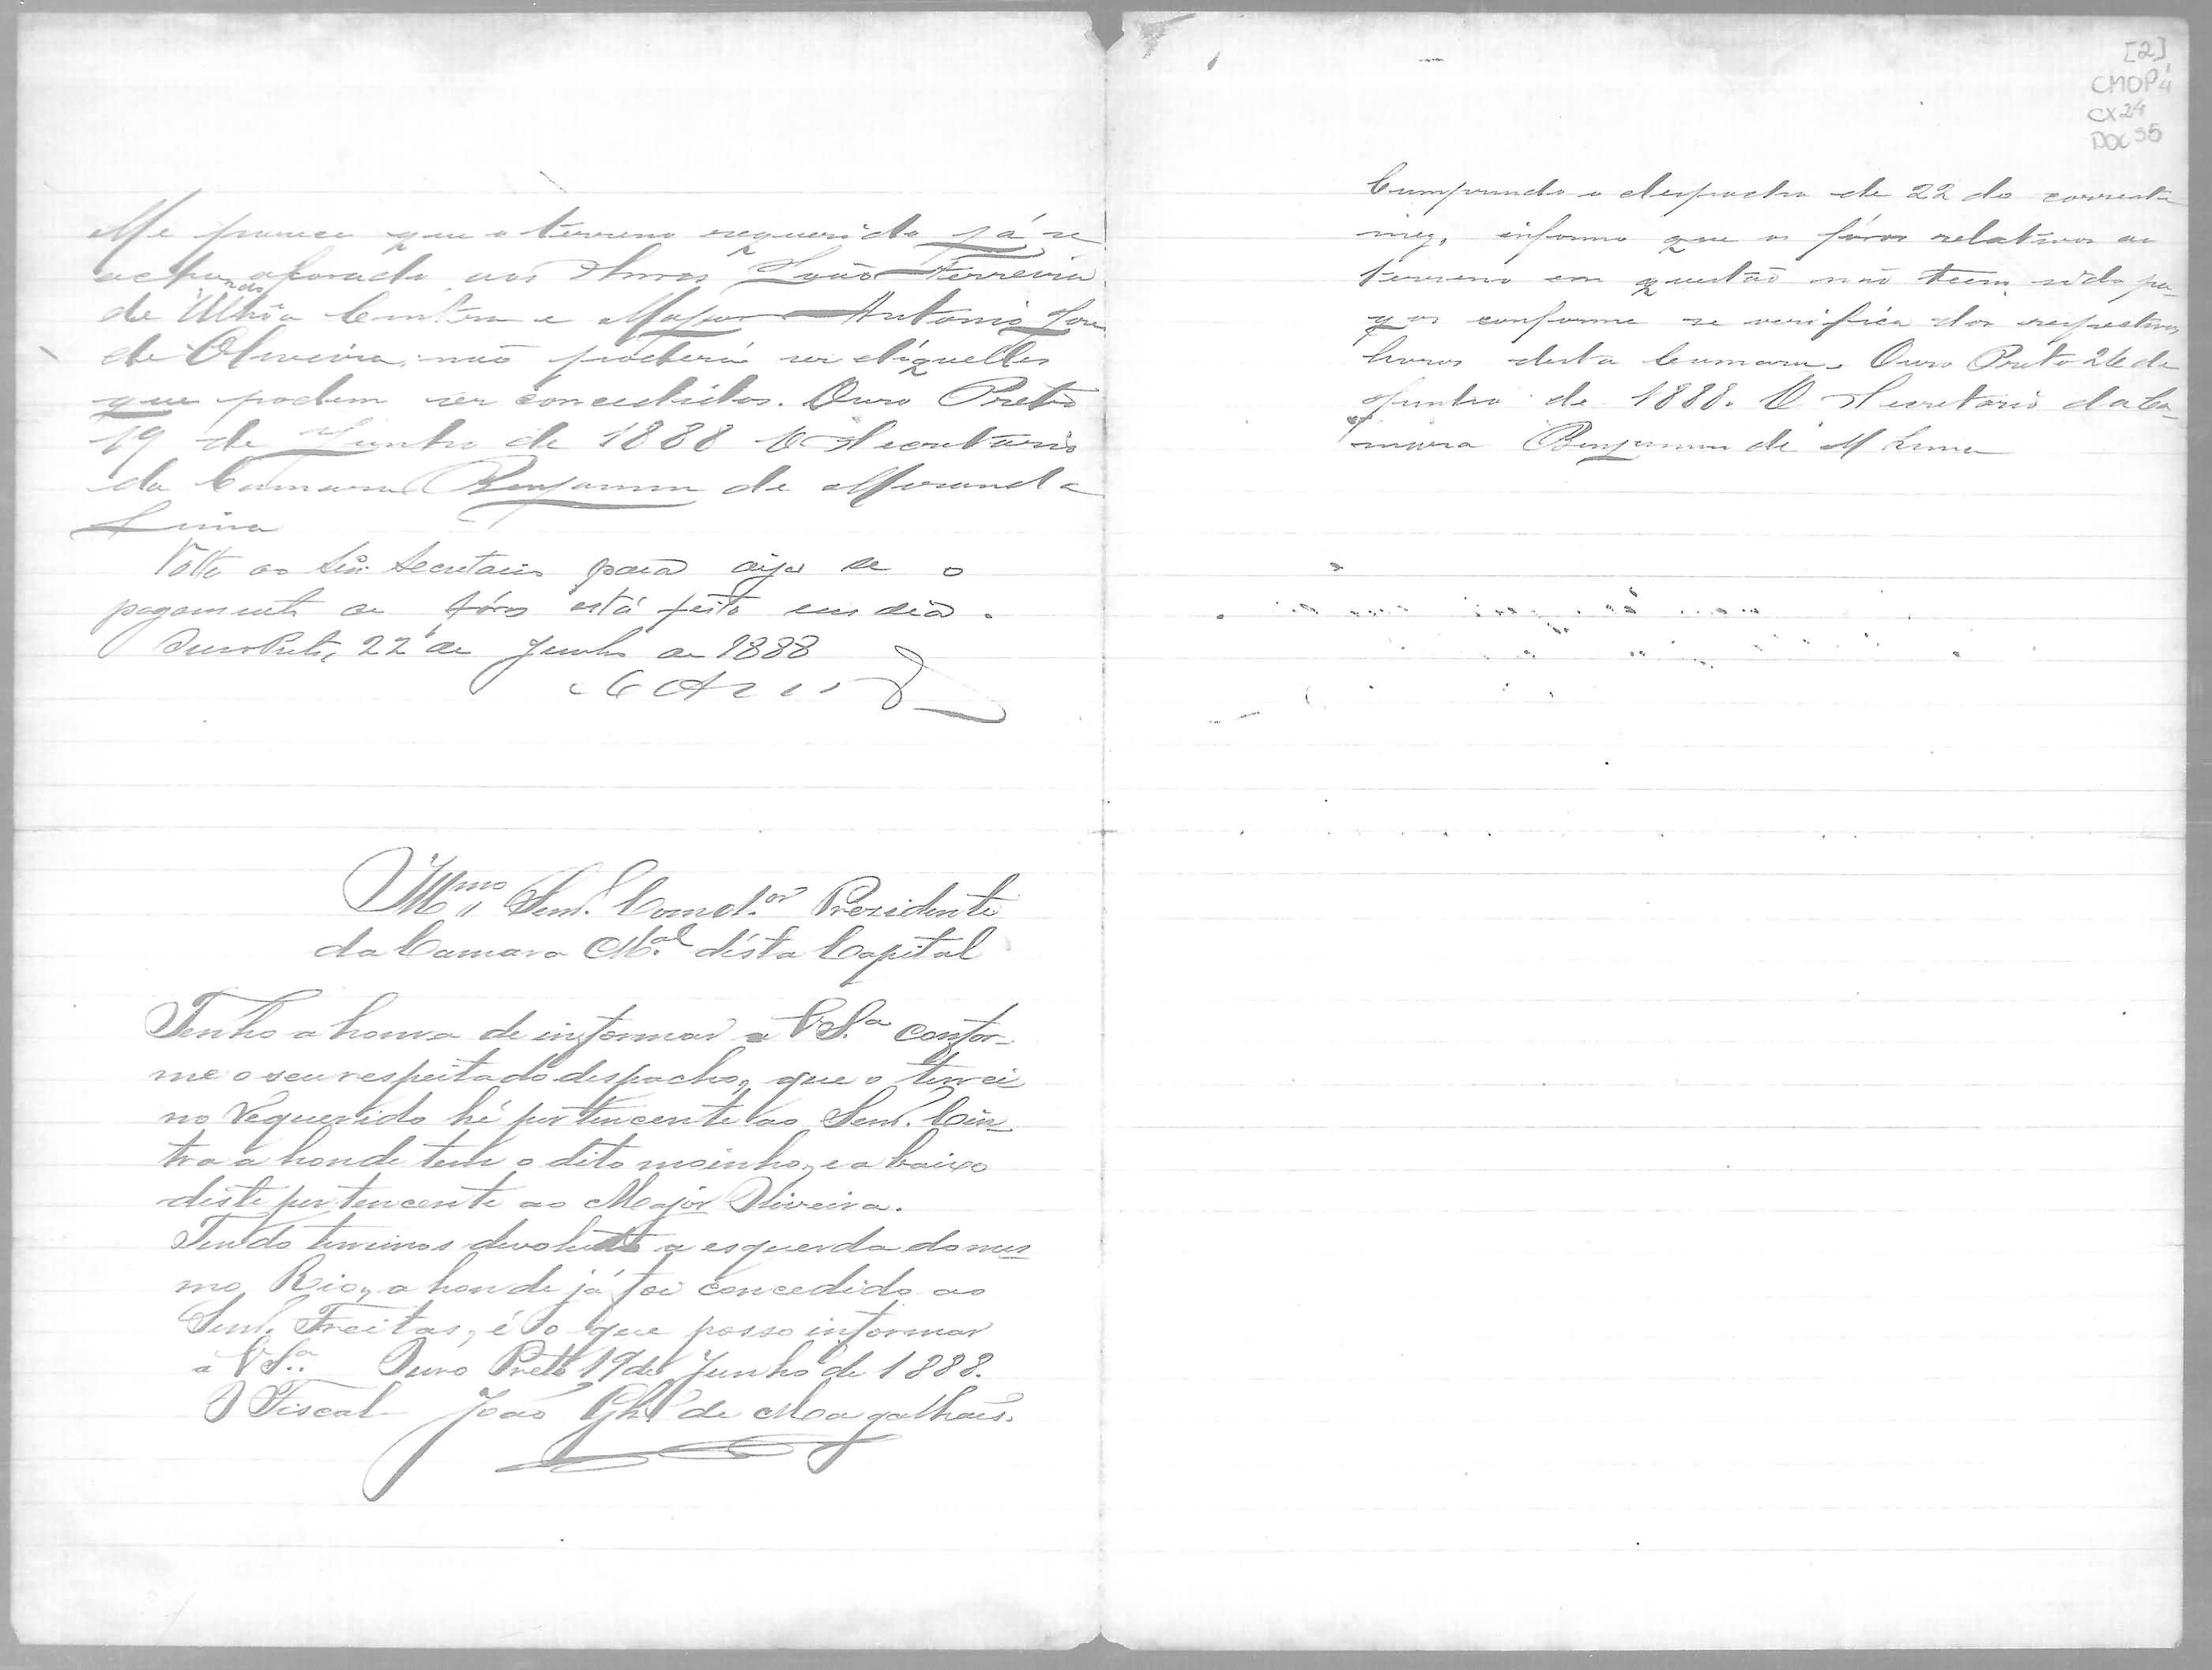 Me parece que o terreno requerido já se
acha aforado aos Snres João Ferreira
de Ulhôa Cintra e Major Antonio José
de Oliveira, não poderá ser d'aquelles
que podem ser concedidos. Ouro Preto
19 de Junho de 1888 O Secretario
da Camara Benjamin de Miranda
Lima
Volte ao Snr. Secretario para diga se o
pagamento de fóros está feito em dia.
Ouro Preto, 22 de Junho de 1888
Illmo Senr. Comdor Presidente
da Camara Mal désta Capital
Tenho a honra de informar a VSa confor-
me o seu respeitado despacho, que o terrei
no requerido hé pertencente ao Senr. Cin-
tra a honde tem o dito moinho, e a baixo
déste pertencente ao Major Oliveira.
Tendo terrinos devoluto a esquerda do mes
mo Rio, a honde já foi concedido ao
Senr. Freitas, é o que posso informar
a VSa. Ouro Preto 19 de Junho de 1888.
O Fiscal João Ghe de Magalhães.
[2]
CMOP
CX24
DOC 55
Cumprindo o despacho de 22 do corrente
mez, informo que os fóros relativos ao
terreno em questão não teem sido pa-
gos conforme se verifica dos respectivos
livros desta Camara. Ouro Preto 26 de
Junho de 1888. O Secretario da Ca-
mara Benjamin de M Lima